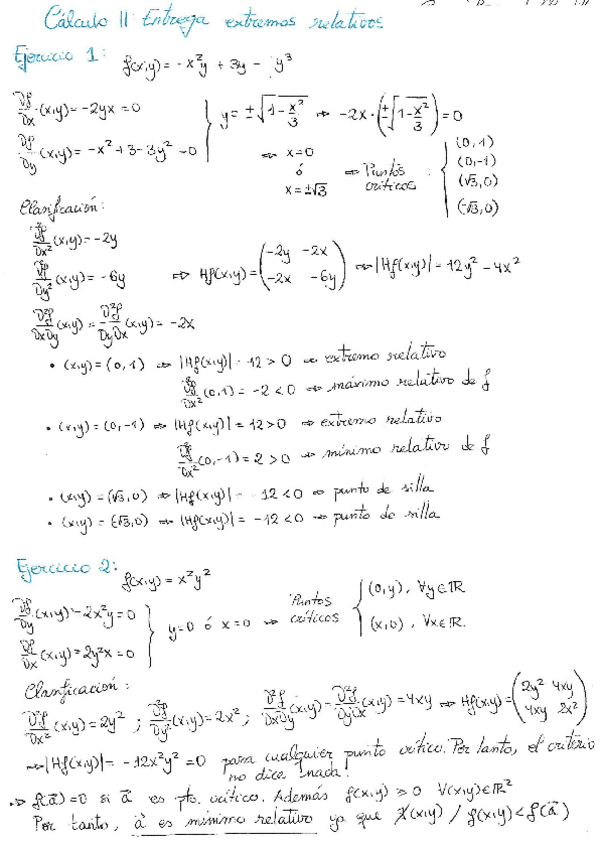 Cálculo II Entrega extremos relativos
Ejercicio 1: f(x,y) = -x²y + 3y - y³
∂f/∂x (x,y) = -2yx = 0
∂f/∂y (x,y) = -x² + 3 - 3y² = 0
y = ±√(1 - x²/3) ⇒ -2x·(±√(1 - x²/3)) = 0
⇒ x=0
ó
x = ±√3
⇒ Puntos críticos :
(0,1)
(0,-1)
(√3,0)
(-√3,0)
Clasificación:
∂²f/∂x² (x,y) = -2y
∂²f/∂y² (x,y) = -6y
∂²f/∂x∂y (x,y) = ∂²f/∂y∂x (x,y) = -2x
⇒ Hf(x,y) = (-2y -2x
-2x -6y) ⇒ |Hf(x,y)| = 12y² - 4x²
• (x,y) = (0,1) ⇒ |Hf(x,y)| = 12 > 0 ⇒ extremo relativo
∂²f/∂x² (0,1) = -2 < 0 ⇒ máximo relativo de f
• (x,y) = (0,-1) ⇒ |Hf(x,y)| = 12 > 0 ⇒ extremo relativo
∂²f/∂x² (0,-1) = 2 > 0 ⇒ mínimo relativo de f
• (x,y) = (√3,0) ⇒ |Hf(x,y)| = -12 < 0 ⇒ punto de silla
• (x,y) = (-√3,0) ⇒ |Hf(x,y)| = -12 < 0 ⇒ punto de silla
Ejercicio 2: f(x,y) = x²y²
∂f/∂y (x,y) = 2x²y = 0
∂f/∂x (x,y) = 2y²x = 0
y=0 ó x=0 ⇒ Puntos críticos
(0,y), ∀y∈ℝ
(x,0), ∀x∈ℝ.
Clasificación:
∂²f/∂x² (x,y) = 2y² ; ∂²f/∂y² (x,y) = 2x² ; ∂²f/∂x∂y (x,y) = ∂²f/∂y∂x (x,y) = 4xy ⇒ Hf(x,y) = (2y² 4xy
4xy 2x²)
⇒ |Hf(x,y)| = -12x²y² = 0 para cualquier punto crítico. Por tanto, el criterio
no dice nada.
⇒ f(a⃗) = 0 si a⃗ es pto. crítico. Además f(x,y) ≥ 0 ∀(x,y)∈ℝ²
Por tanto, a⃗ es mínimo relativo ya que ∄(x,y) / f(x,y) < f(a⃗)